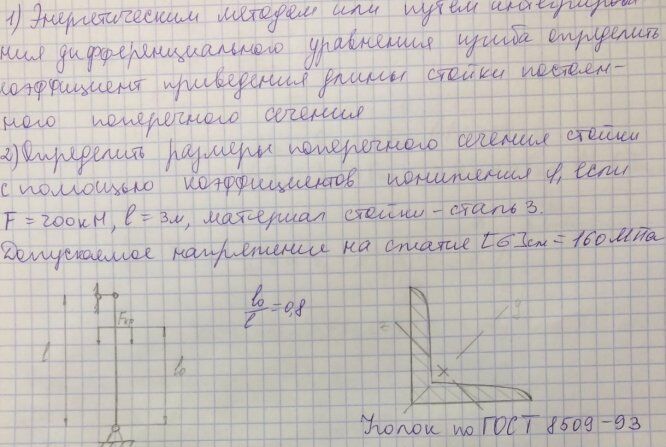 1) Энергетическим методом или путем интегрирова
ния дифференциального уравнения изгиба определить
коэффициент приведения длины стойки постоян-
ного поперечного сечения
2) Определить размеры поперечного сечения стойки
с помощью коэффициентов понижения φ, если
F = 200кН, l = 3м, материал стойки - сталь 3.
Допускаемое напряжение на сжатие [σ]сж = 160 МПа
l
Fкр
l₀
l₀/l = 0,8
z
y
x
Уголок по ГОСТ 8509-93